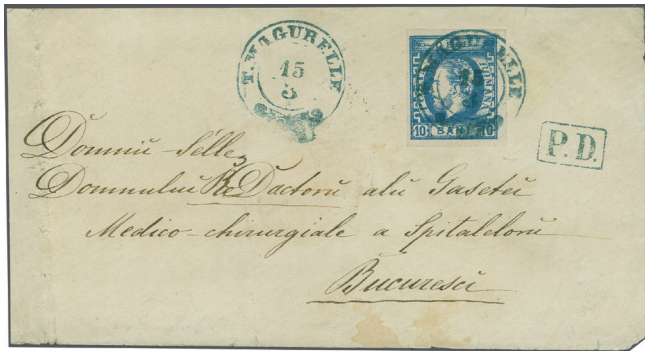 T. MAGURELLE
15
3
ROMANA
10 BANI 10
P.D.
Domniu Sélle
Domnului Re Dactorŭ alu Gasetei
Medico-chirurgiale a Spitalelorŭ
Bucuresci